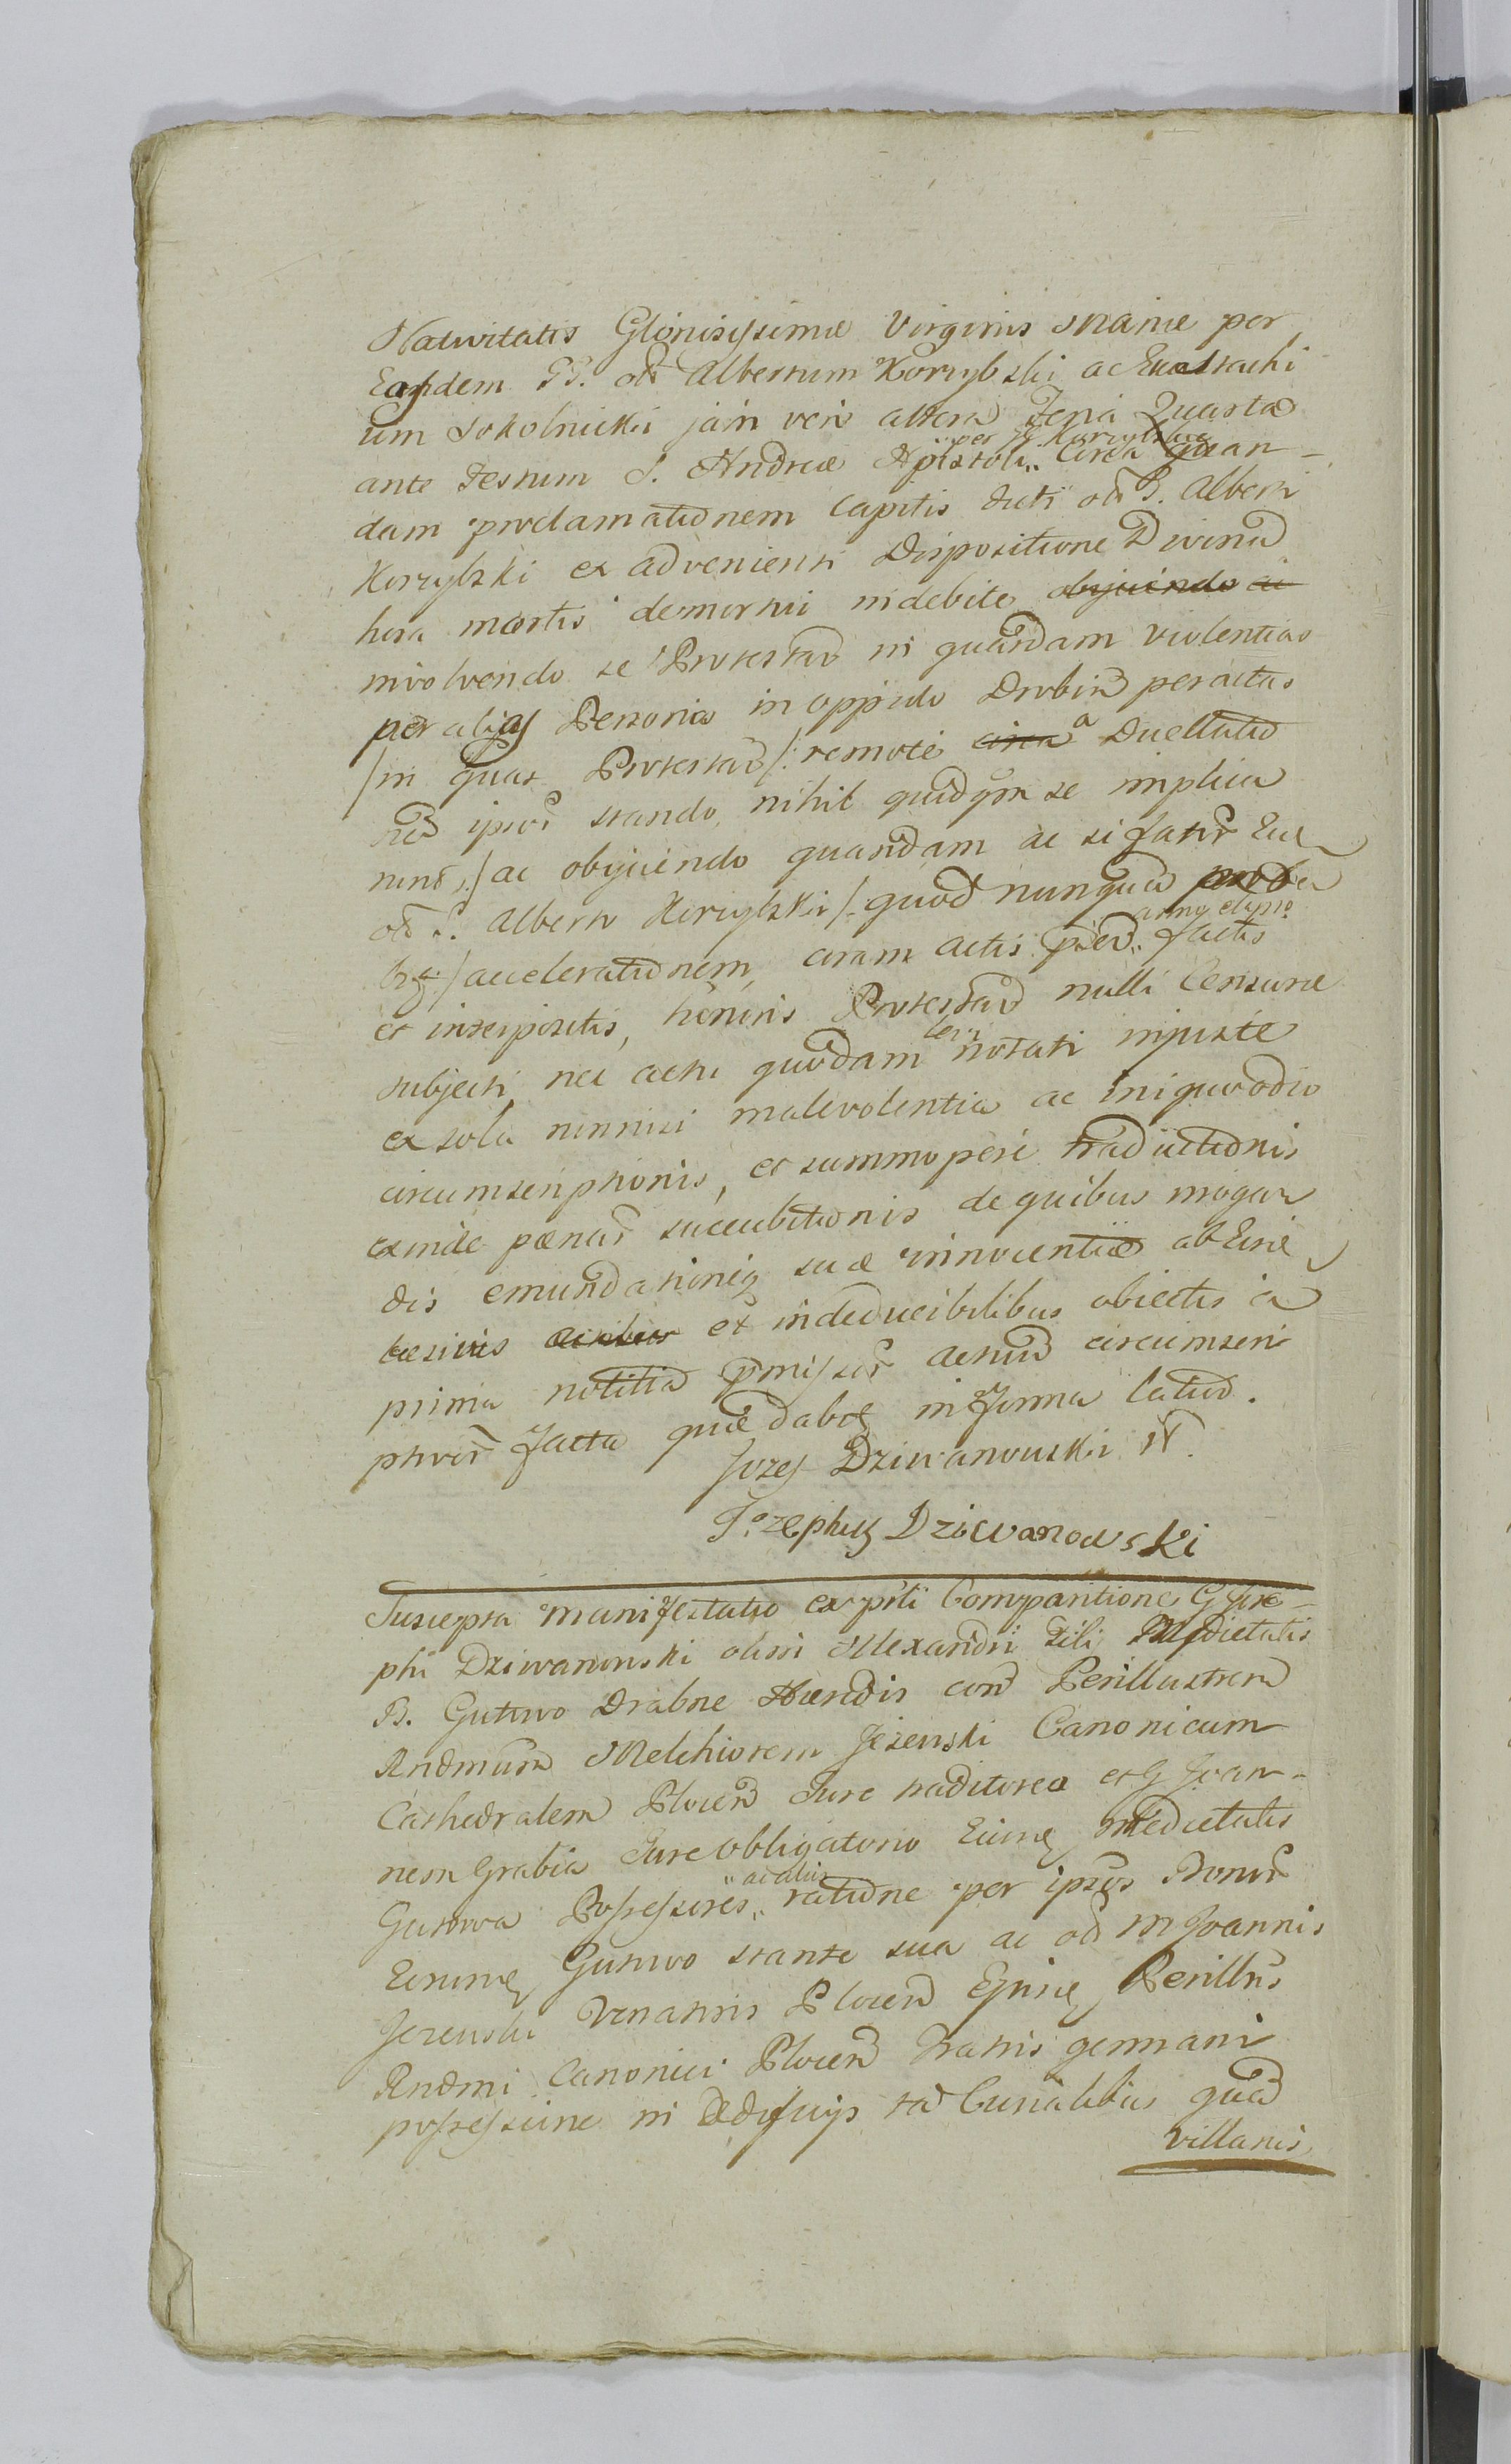 Nativitatis Gloriosissimæ Virginis Mariæ per
Eosdem GG. olī Albertum Korzybski ac Eustachi
um Sokolnicki jam vero altera Feria Quarta
ante Festum S. Andreæ Apostoli „ per G. Korzybskie „ Circa quan-
dam proclamationem Capitis dicti olī G. Alberti
Korzybski ex advenienti Dispositione Divina
hora mortis demortui indebite obijciendo ai
involvendo se Protestañ in quandam violentias
per alias Personas in oppido Drobin peractas
/in quas Protestañ/: remote circa a Duellatio
ne ipsor̃ stando, nihil quidqm̃ se implica
runt:/ ac obijciendo quandam ac si fatir̃
olī G. Alberti Korzybski /quod nunquā proba
bt̃r:/ accelerationem, coram actis pñ „ anno elapso „ factis
et interpositis, honoris Protestañ nulli Censuræ
subjecti nec actu quodam levi notati injuste
ex sola nonnisi malevolentia ac iniquo odio
circumscriptionis, et summopere traductionis
exinde pænar̃ succubitionis de quibus
dis emundationis suæ innocentiæ
et indeducibilibus obiectis a
prima notitia p̃missor̃ actuū circumscri
ptivor̃ facta in Forma latiō.
Jozef Dziwanowski N
Jozephus Dziwanowski
Suscepta Manifestatio ex pñti Comparitione G Jose-
phi Dziwanowski olim Alexandri Fili Medietatis
B. Gutowo Drabne Hæredis con̄ Perillustrem
Rndmum Melchiorem Jezewski Canonicum
Cathedralem Plocen̄ Jure traditoreo et G Joan-
nem Grabia Jure obligatorio Eiusdē Medietatis
Gutowa Possessores „ ac alios „ ratione per ipsos Bonor̃
Eorundē Gutowo stante sua ac olī M Joannis
Jezewski Venatoris Plocen̄ Ejusdē Perillris
Rndmi Canonici Plocen̄ Fratris germani
possessione in Ædificijs tā Curialibus quā
villanis